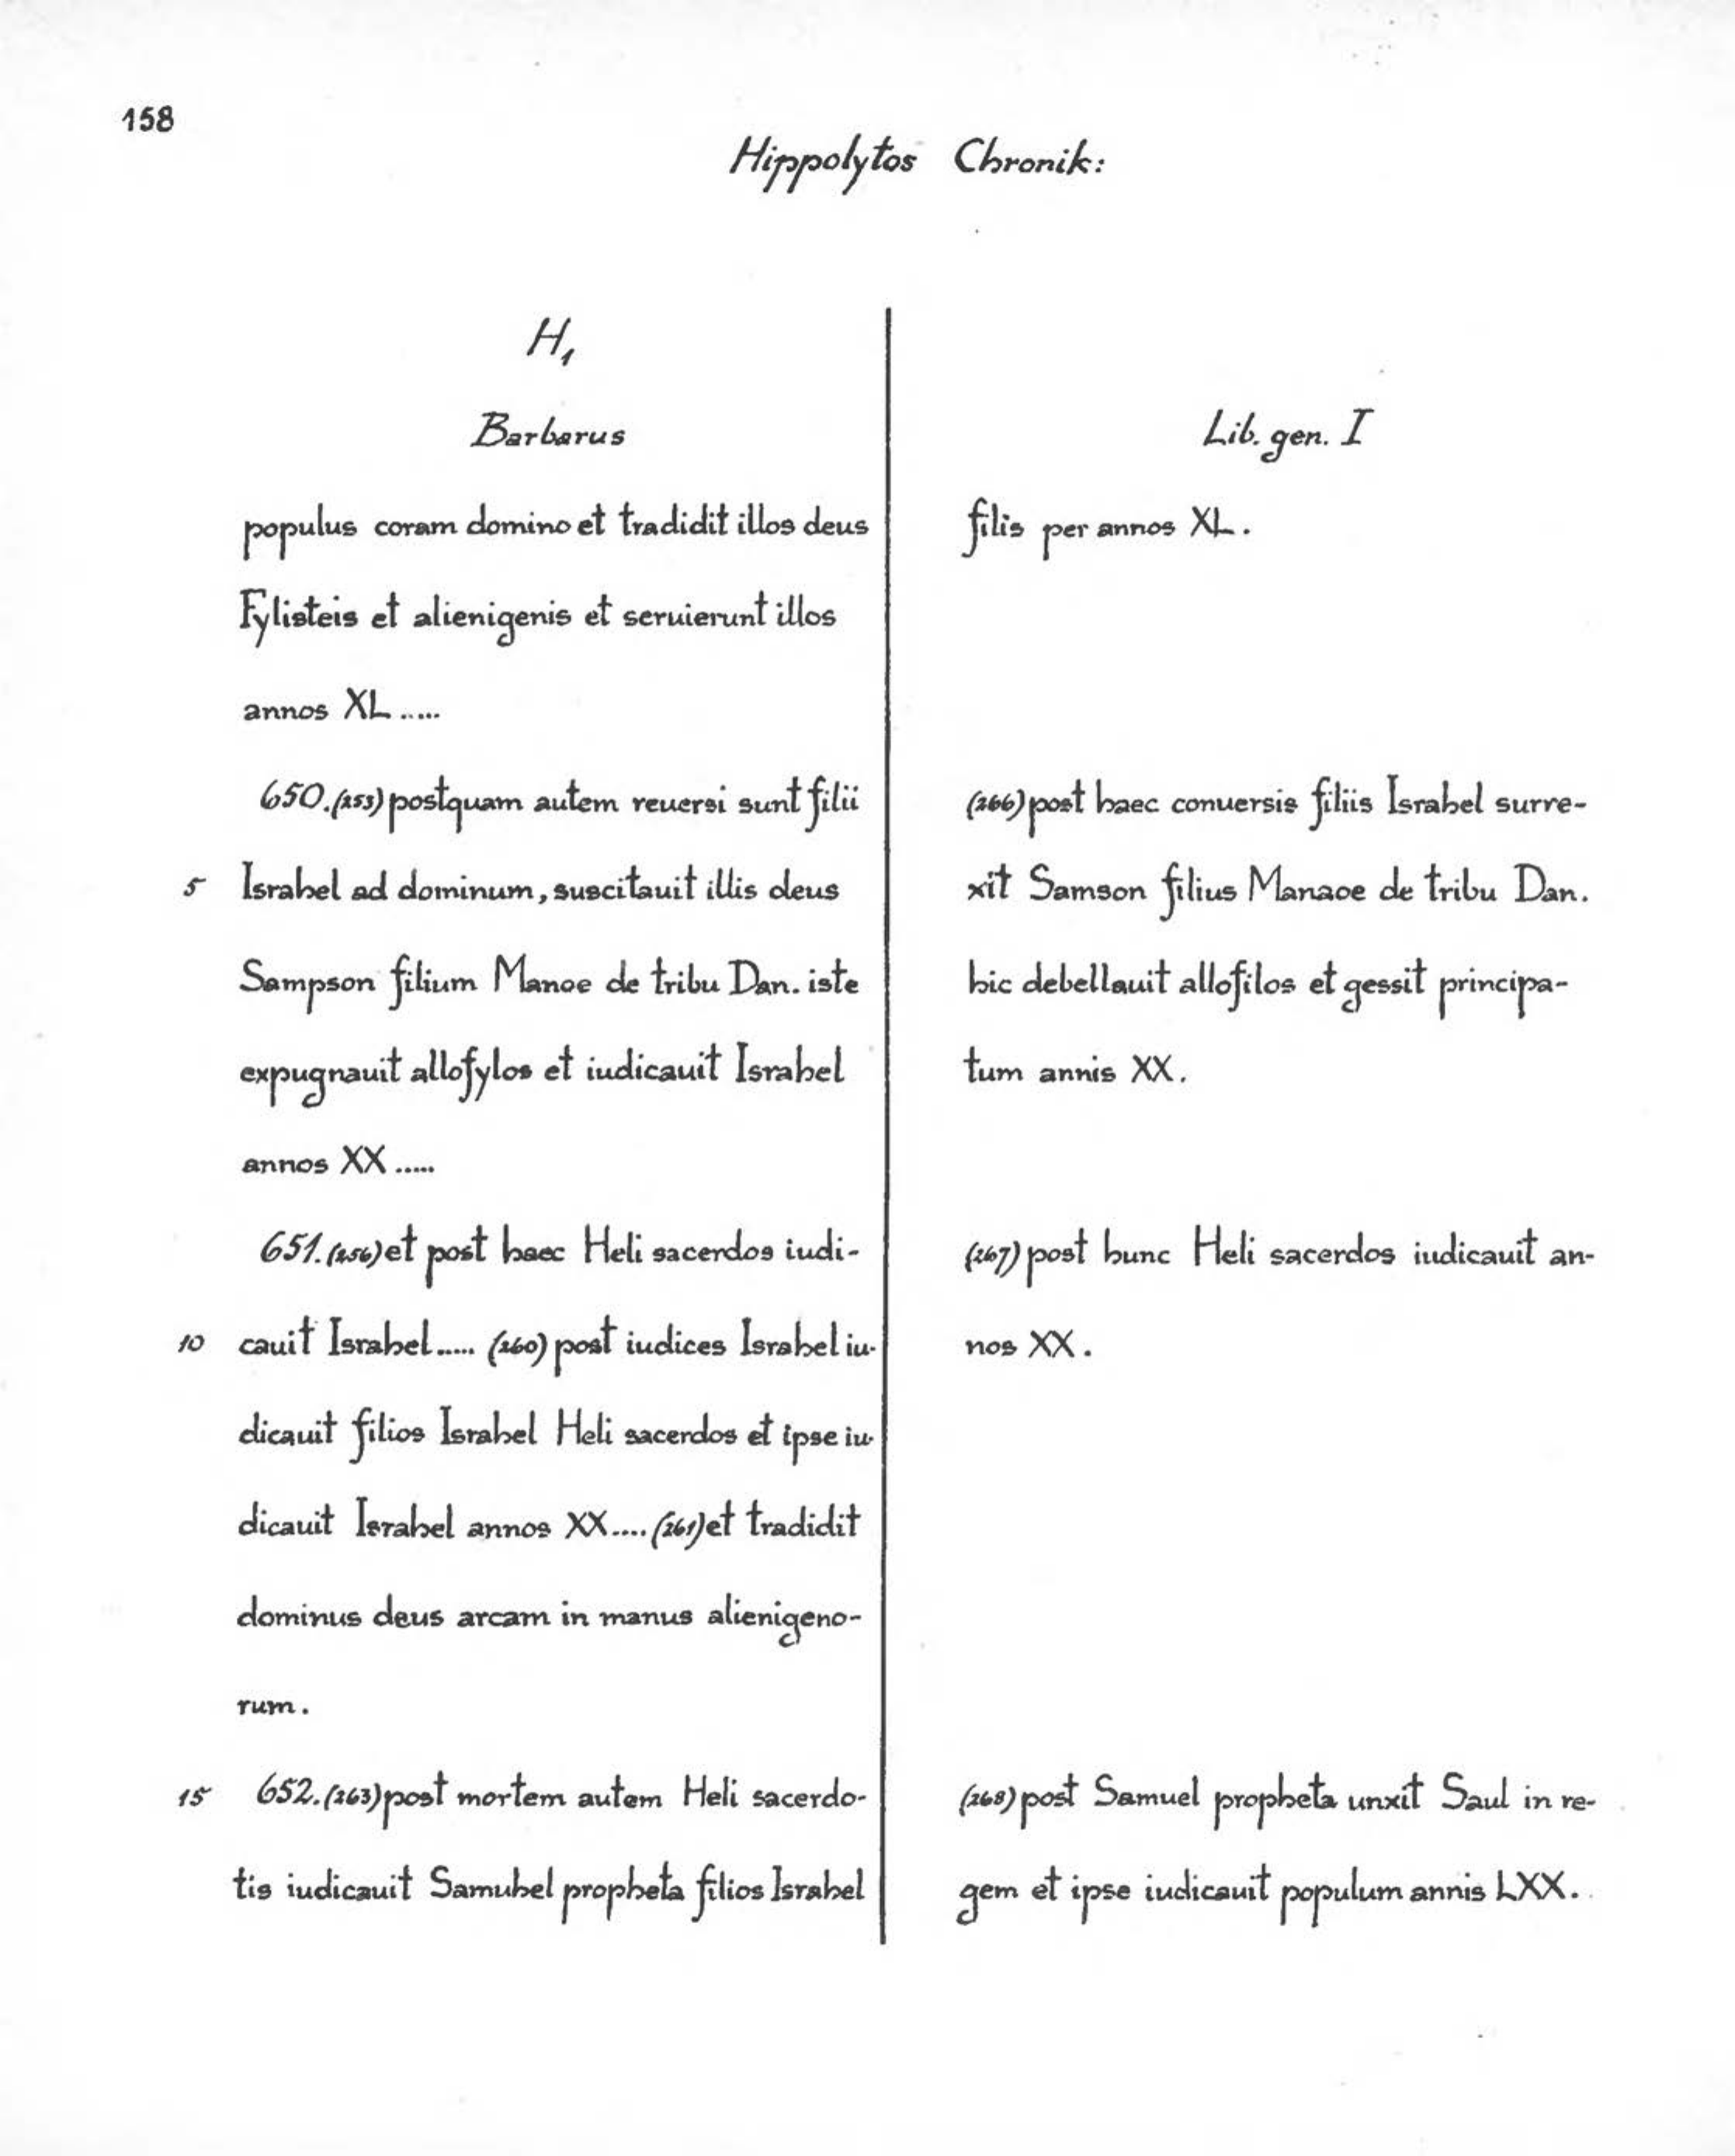 158
Hippolytos Chronik:
H₁
Barbarus
populus coram domino et tradidit illos deus
Fylisteis et alienigenis et seruierunt illos
annos XL .....
650. (253) postquam autem reuersi sunt filii
5 Israhel ad dominum, suscitauit illis deus
Sampson filium Manoe de tribu Dan. iste
expugnauit allofylos et iudicauit Israhel
annos XX .....
651. (256) et post haec Heli sacerdos iudi-
10 cauit Israhel ..... (260) post iudices Israhel iu-
dicauit filios Israhel Heli sacerdos et ipse iu-
dicauit Israhel annos XX .... (261) et tradidit
dominus deus arcam in manus alienigeno-
rum.
15 652. (263) post mortem autem Heli sacerdo-
tis iudicauit Samuhel propheta filios Israhel
Lib. gen. I
filis per annos XL.
(266) post haec conuersis filiis Israhel surre-
xit Samson filius Manaoe de tribu Dan.
hic debellauit allofilos et gessit principa-
tum annis XX.
(267) post hunc Heli sacerdos iudicauit an-
nos XX.
(268) post Samuel propheta unxit Saul in re-
gem et ipse iudicauit populum annis LXX.